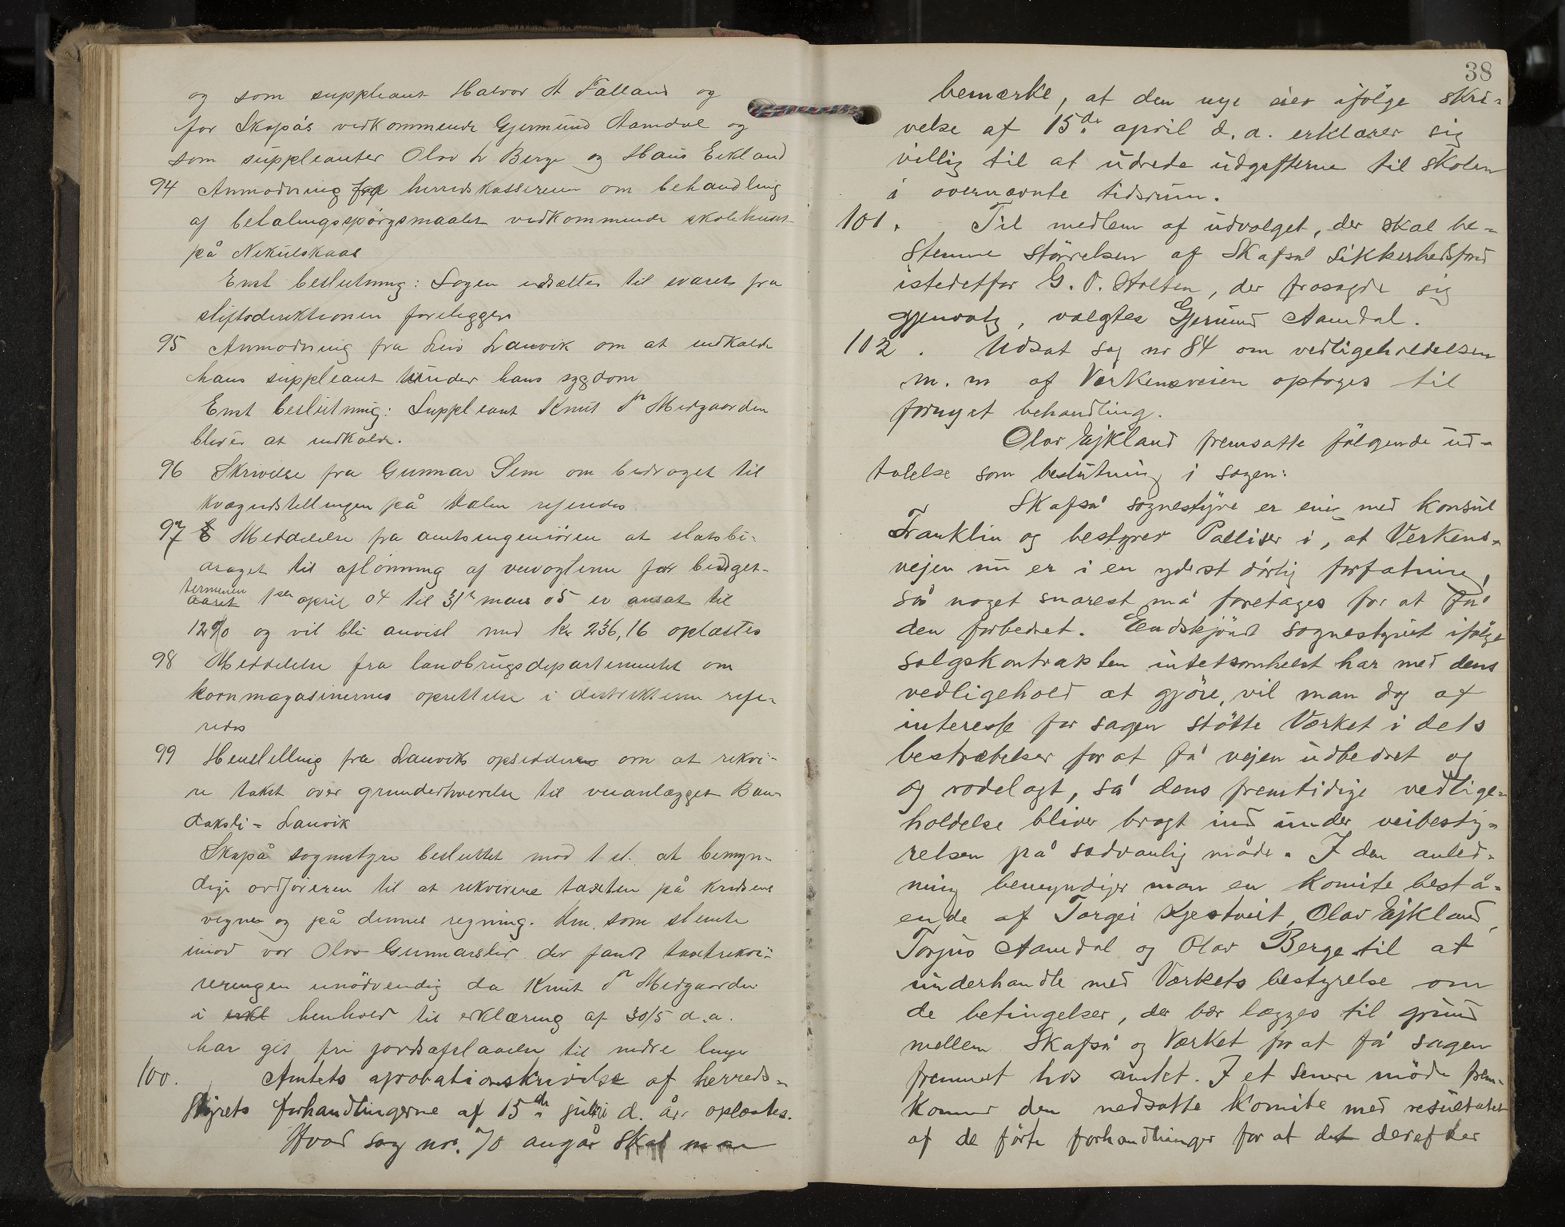 og som suppleant Halvor H Falland og
for Skafsås vedkommende Gjermund Aamdal og
som suppleanter Olav L Berge og Hans Eikland
94 Anmodning fra herredskassereren om behandling
af betalingsspørgsmaalet vedkommende skolehuset
på Nikulskaas
Enst beslutning: Sagen udsættes til svaret fra
stiftsdirektionen foreligger
95 Anmodning fra Leiv Lauvik om at indkalde
hans suppleant under hans sygdom
Enst beslutning: Suppleant Knut P Midgaarden
bliver at indkalde.
96 Skrivelse fra Gunnar Sem om bidraget til
kvægudstillingen på Dalen refereredes
97 Meddelelse fra amtsingeniøren at statsbi-
draget til aflønning af veivogterne for budget-
terminen aaret 1ste april 04 til 31te mars 05 er ansat til
12% og vil bli anvist med kr 236,16 oplæstes
98 Meddelelse fra landbrugsdepartementet om
kornmagasinernes oprettelse i distrikterne refe-
redes
99 Henstilling fra Lauviks opsiddere om at rekvi-
re takst over grunderhvervelse til veianlægget Ban-
daksli - Lauvik
Skafså sognestyre besluttet mod 1 st. at bemyn-
dige ordføreren til at rekvirere taxten på kredsens
vegne og på dennes regning. Den som stemte
imod var Olav Gunnarslid der fandt taxtrekvi-
reringen unødvendig da Knut P Midgaarden
i henhold til erklæring af 30/5 d.a.
har git fri jordsafstaaelse til nedre linje
100. Amtets aprobationsskrivelse af herreds-
styrets forhandlingerne af 15de juli d. år oplæstes.
Hvad sag nr. 70 angår skal man
38
bemærke, at den nye eier ifølge skri-
velse af 15de april d.a. erklærer sig
villig til at udrede udgifterne til skolen
i overnævnte tidsrum.
101. Til medlem af udvalget, der skal be-
stemme størrelsen af Skafså sikkerhedsfond
istedetfor G. O. Holten, der frasagde sig
gjenvalg, valgtes Gjermund Aamdal.
102. Udsat sag nr 84 om vedligeholdelsen
m.m af Verkensveien optoges til
fornyet behandling.
Olav Ejkland fremsatte følgende ud-
talelse som beslutning i sagen:
Skafså sognestyre er enig med konsul
Franklin og bestyrer Palliser i, at Verkens-
vejen nu er i en yderst dårlig forfatning,
så noget snarest må foretages for at få
den forbedret. Endskjønt sognestyret ifølge
salgskontrakten intetsomhelst har med dens
vedligehold at gjøre, vil man dog af
interesse for sagen støtte Værket i dets
bestræbelser for at få vejen udbedret og
og rodelagt, så dens fremtidige vedlige-
holdelse bliver bragt ind under veibesty-
relsen på sædvanlig måde. I den anled-
ning bemyndiger man en komite bestå-
ende af Torgei Kjestveit, Olav Ejkland,
Torjus Aamdal og Olav Berge til at
underhandle med Værkets bestyrelse om
de betingelser, der bør lægges til grund
mellem Skafså og Værket for at få sagen
fremmet hos amtet. I et senere møde frem-
kommer den nedsatte komite med resultatet
af de førte forhandlinger for at det derefter